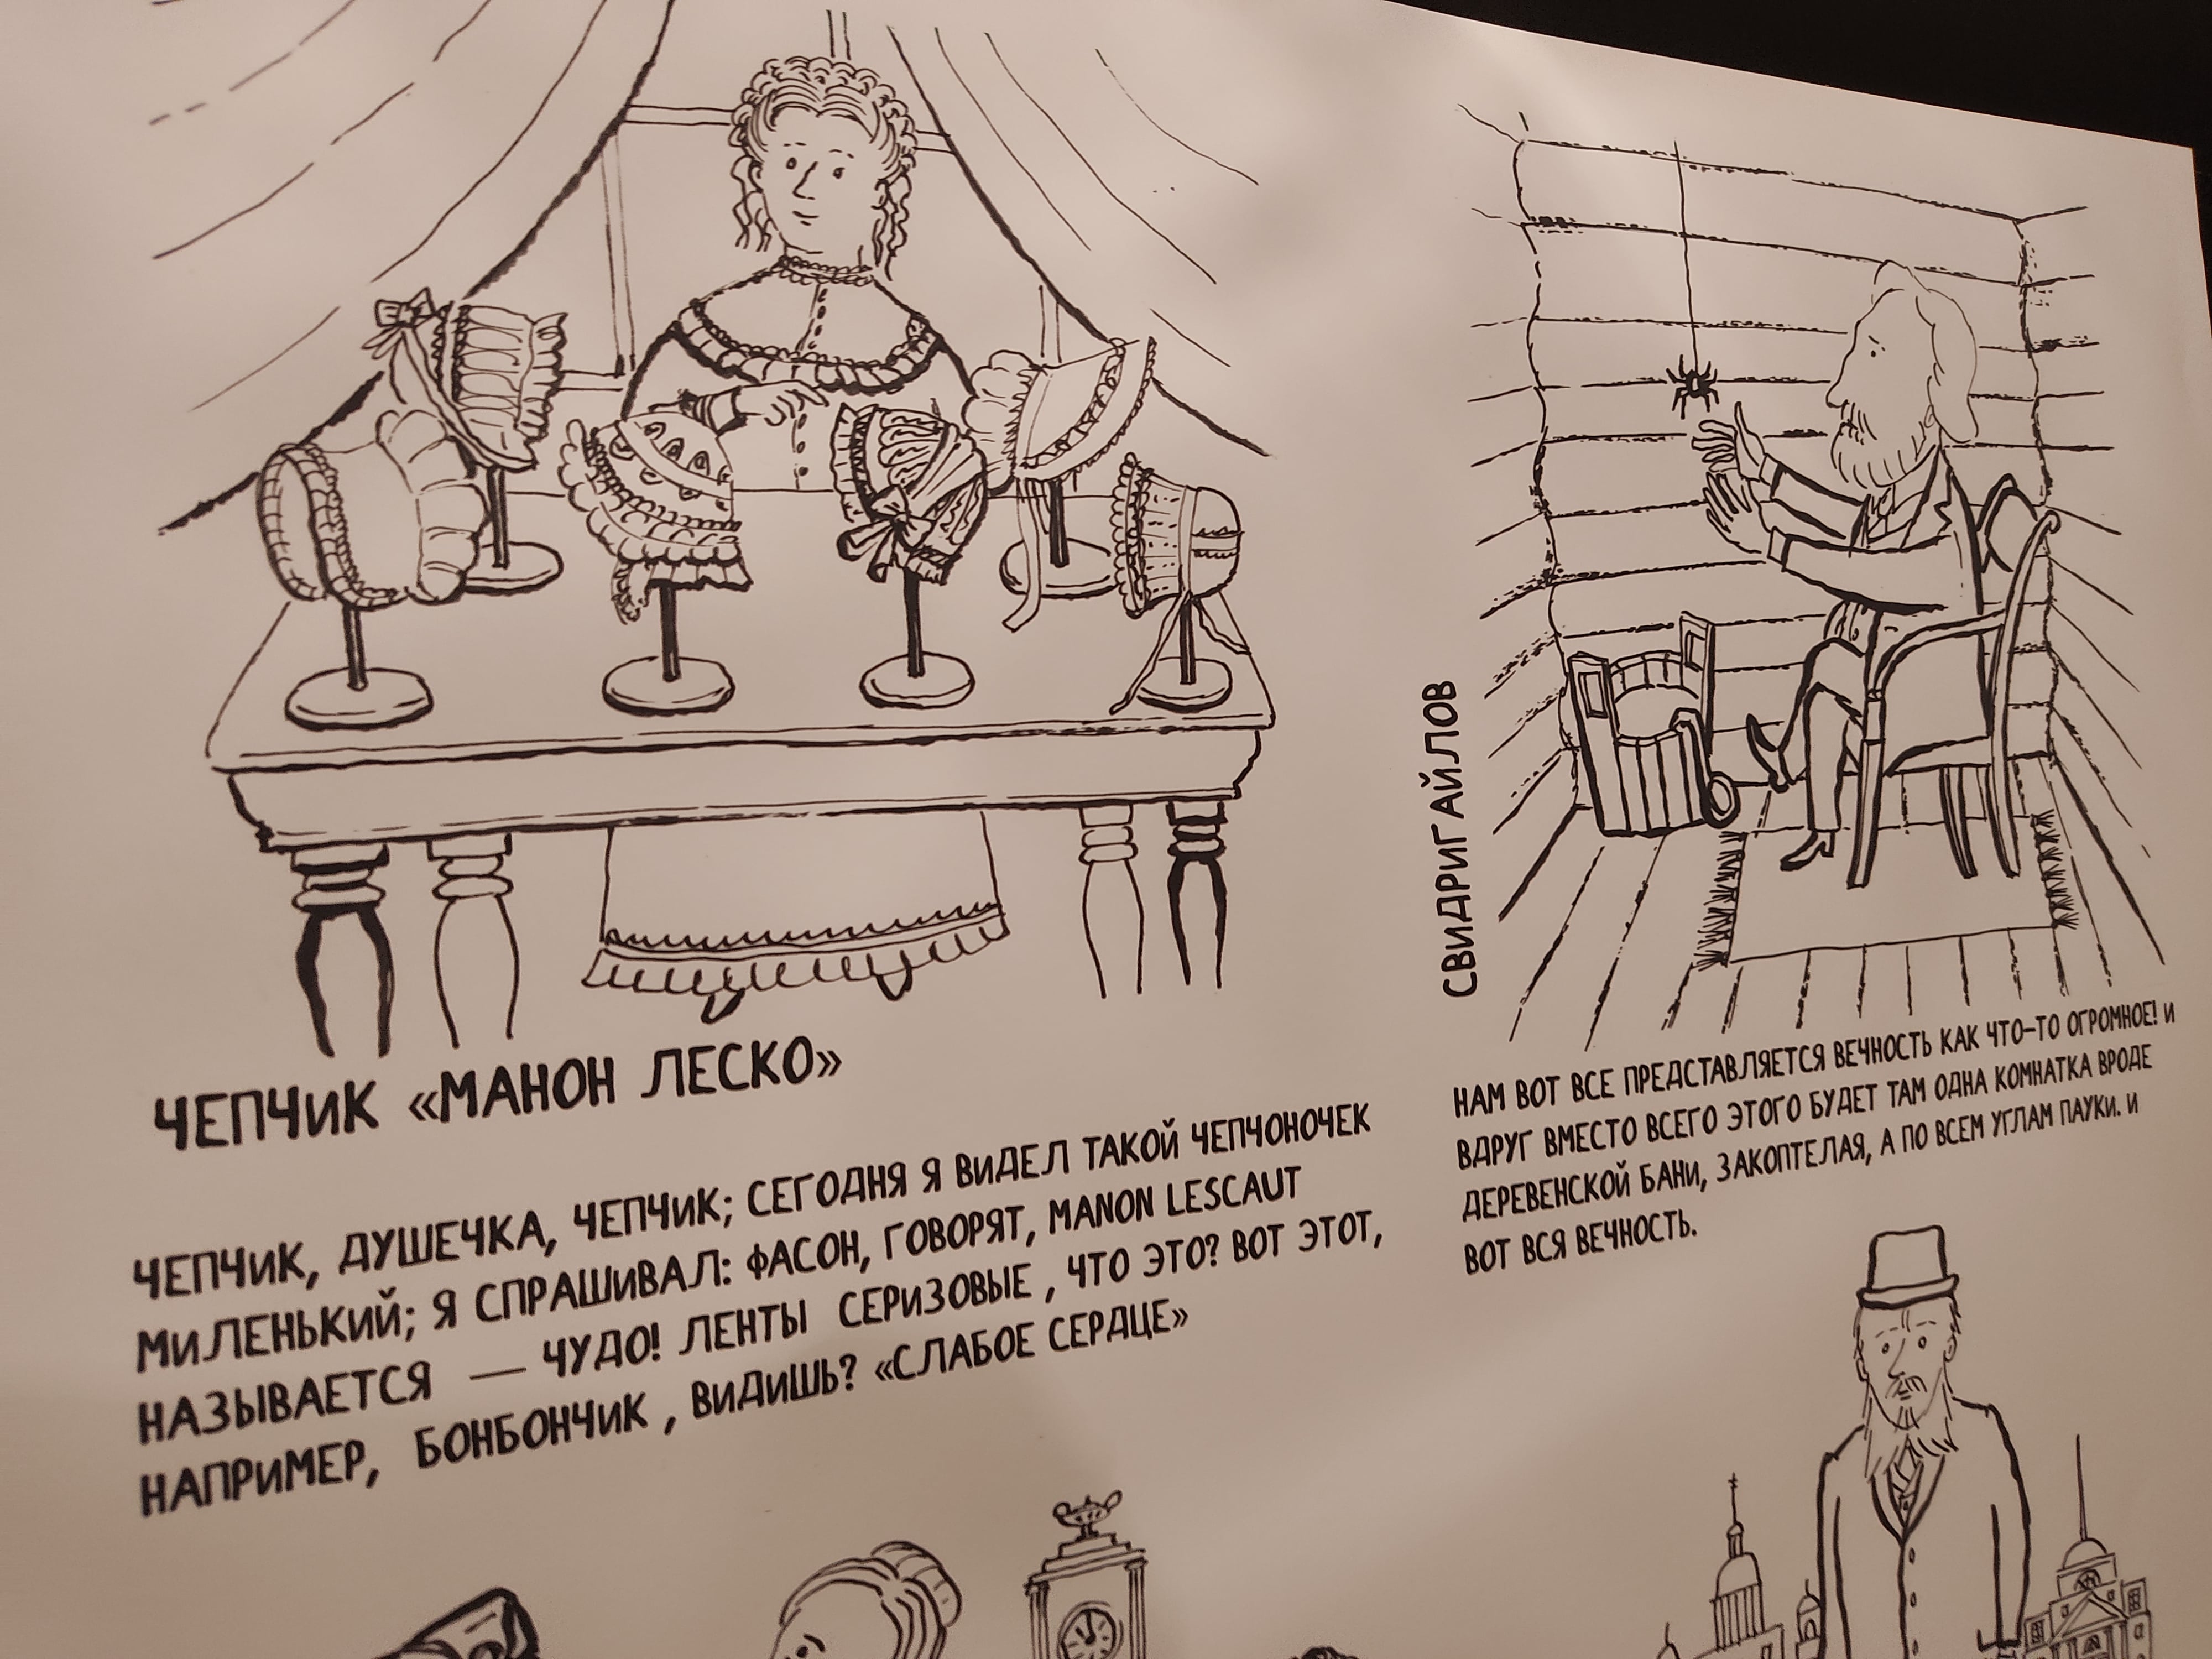 ЧЕПЧИК «МАНОН ЛЕСКО»
ЧЕПЧИК, ДУШЕЧКА, ЧЕПЧИК; СЕГОДНЯ Я ВИДЕЛ ТАКОЙ ЧЕПЧОНОЧЕК
МИЛЕНЬКИЙ; Я СПРАШИВАЛ: ФАСОН, ГОВОРЯТ, MANON LESCAUT
НАЗЫВАЕТСЯ — ЧУДО! ЛЕНТЫ СЕРИЗОВЫЕ , ЧТО ЭТО? ВОТ ЭТОТ,
НАПРИМЕР, БОНБОНЧИК , ВИДИШЬ? «СЛАБОЕ СЕРДЦЕ»
СВИДРИГАЙЛОВ
НАМ ВОТ ВСЕ ПРЕДСТАВЛЯЕТСЯ ВЕЧНОСТЬ КАК ЧТО-ТО ОГРОМНОЕ! И
ВДРУГ ВМЕСТО ВСЕГО ЭТОГО БУДЕТ ТАМ ОДНА КОМНАТКА ВРОДЕ
ДЕРЕВЕНСКОЙ БАНИ, ЗАКОПТЕЛАЯ, А ПО ВСЕМ УГЛАМ ПАУКИ. И
ВОТ ВСЯ ВЕЧНОСТЬ.